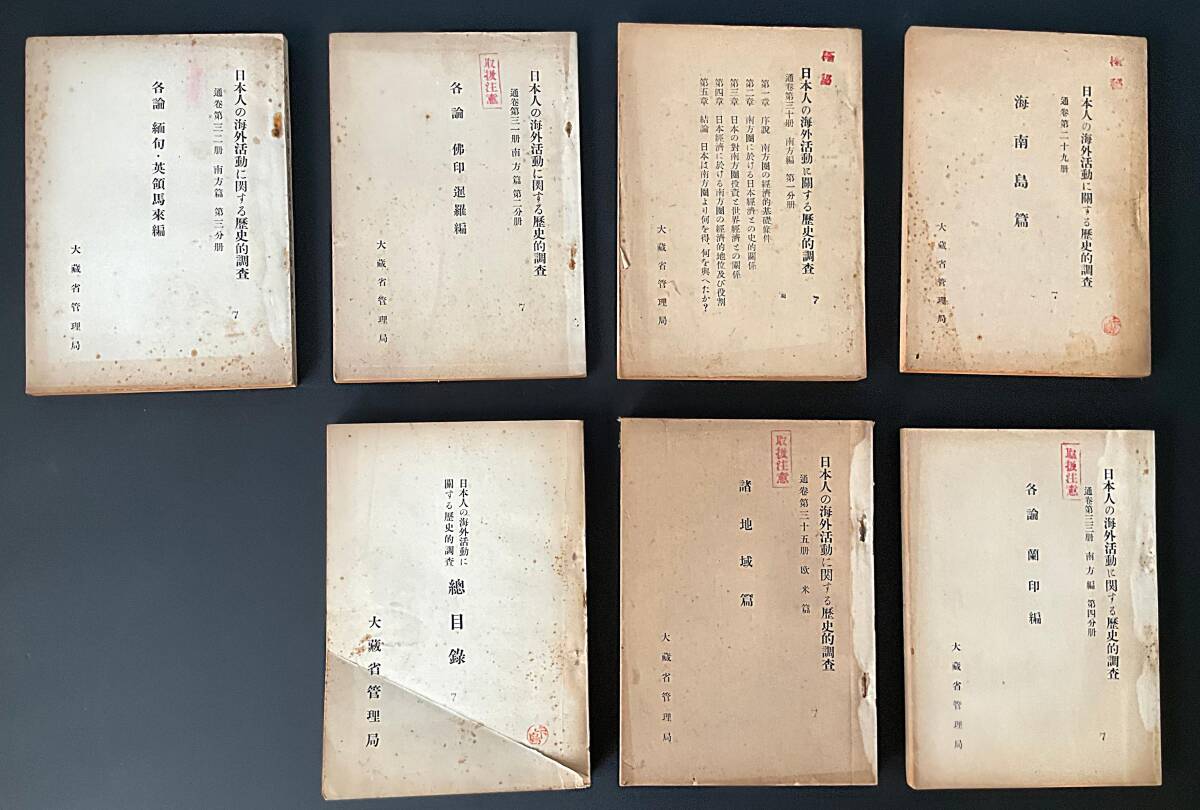 極秘
日本人の海外活動に關する歴史的調査
通巻第二十九册
海南島篇
大藏省管理局
7
極秘
日本人の海外活動に關する歴史的調査
通巻第三十册 南方編 第一分册
第一章 序說 南方圈の經濟的基礎條件
第二章 南方圈に於ける日本經濟との史的關係
第三章 日本の對南方圈投資と世界經濟との關係
第四章 日本經濟に於ける南方圈の經濟的地位及び役割
第五章 結論 日本は南方圈より何を得、何を與へたか?
大藏省管理局
7
取扱注意
日本人の海外活動に関する歴史的調査
通巻第三一册 南方篇 第二分册
各論 佛印 暹羅編
大藏省管理局
7
日本人の海外活動に関する歴史的調査
通巻第三二册 南方篇 第三分册
各論 緬甸・英領馬來編
大藏省管理局
7
取扱注意
日本人の海外活動に関する歴史的調査
通巻第三三册 南方編 第四分册
各論 蘭印編
大藏省管理局
7
取扱注意
日本人の海外活動に関する歴史的調査
通巻第三十五册 欧米篇
諸地域篇
大藏省管理局
7
日本人の海外活動に
關する歴史的調査
總目錄
大藏省管理局
7